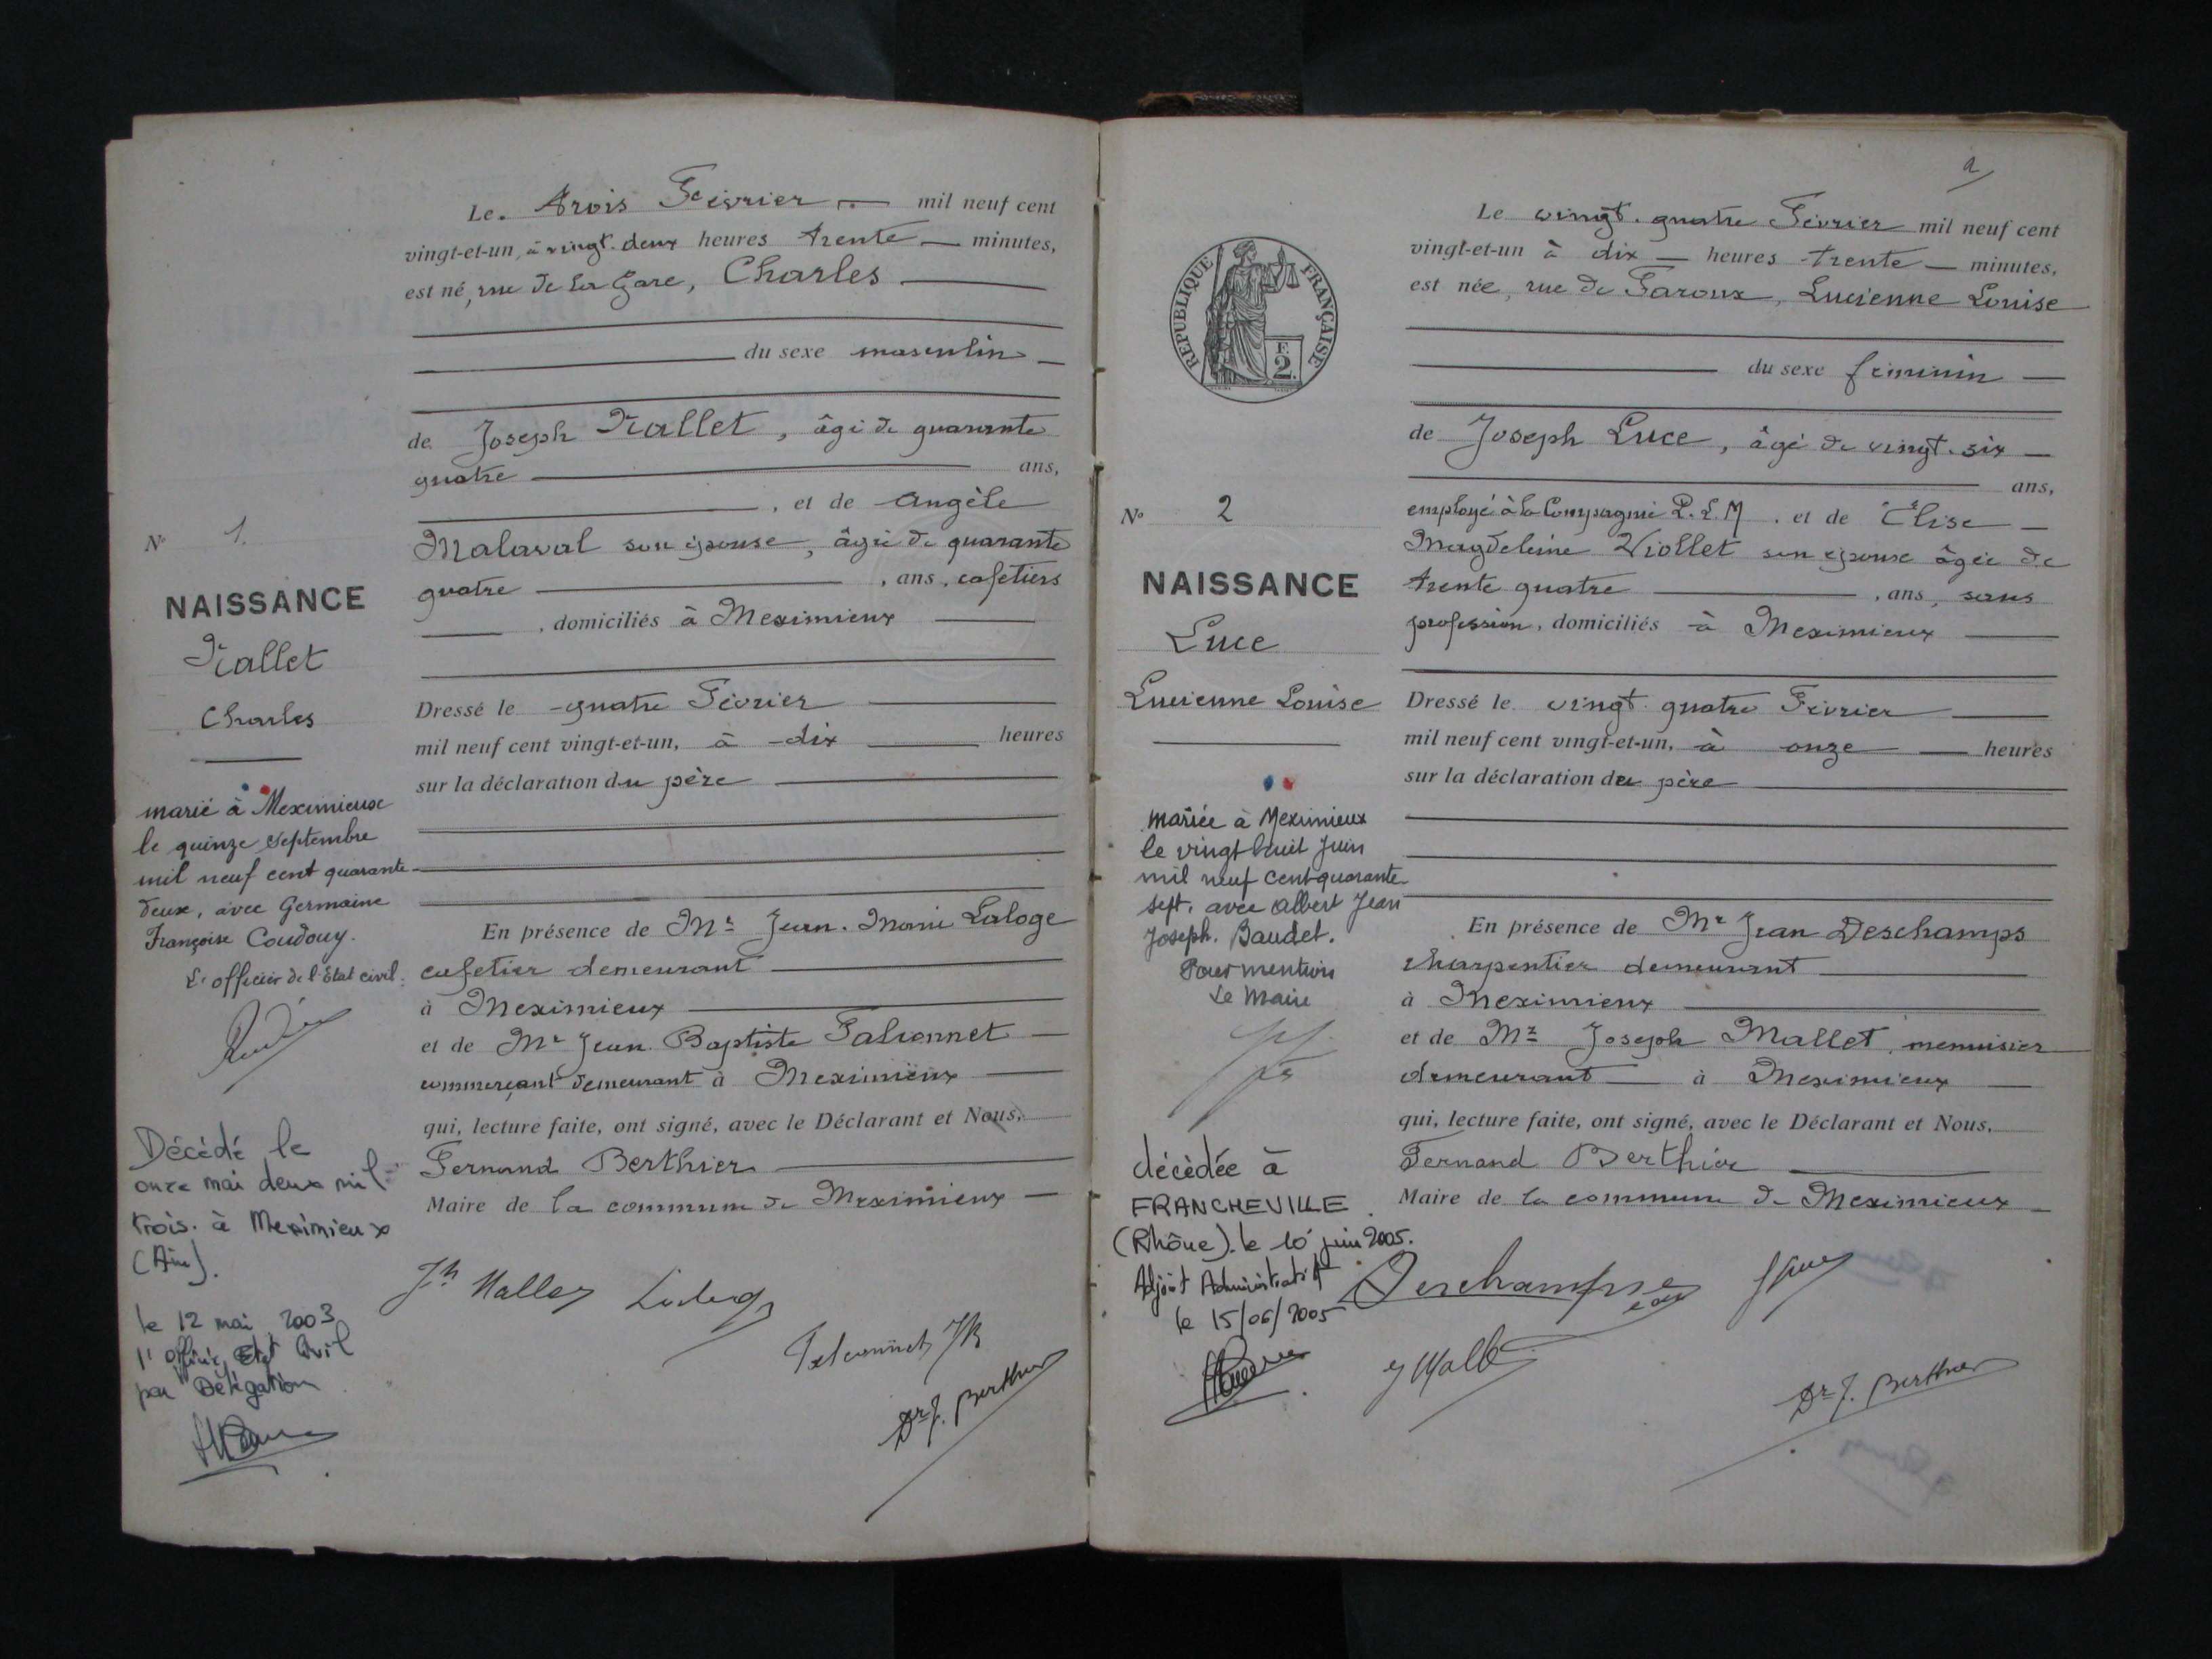 Le. trois Février mil neuf cent
vingt-et-un, à vingt-deux heures trente minutes,
est né, rue de la Gare, Charles
du sexe masculin
de Joseph Nallet, âgé de quarante
quatre ans,
, et de Angèle
Malaval son épouse, âgée de quarante
quatre , ans, cafetiers
, domiciliés à Meximieux
Dressé le quatre Février
mil neuf cent vingt-et-un, à dix heures
sur la déclaration du père
En présence de Mr Jean-Marie Laloge
cafetier demeurant
à Meximieux
et de Mr Jean Baptiste Falconnet
commerçant demeurant à Meximieux
qui, lecture faite, ont signé, avec le Déclarant et Nous,
Fernand Berthier
Maire de la commune de Meximieux
Dr J. Berthier
No 1.
NAISSANCE
Nallet
Charles
marié à Meximieux
le quinze septembre
mil neuf cent quarante
deux, avec Germaine
Françoise Coudouy.
L'officier de l'Etat civil.
Décédé le
onze mai deux mil
trois. à Meximieux
(Ain).
le 12 mai 2003
l'officier Etat Civil
par Délégation
2
Le vingt-quatre Février mil neuf cent
vingt-et-un à dix heures trente minutes,
est née, rue de Faroux, Lucienne Louise
du sexe féminin
de Joseph Luce, âgé de vingt-six
ans,
employé à la Compagnie P.L.M , et de Elise
Magdeleine Viollet son épouse âgée de
trente quatre , ans, sans
profession, domiciliés à Meximieux
Dressé le vingt quatre Février
mil neuf cent vingt-et-un, à onze heures
sur la déclaration du père
En présence de Mr Jean Deschamps
charpentier demeurant
à Meximieux
et de Mr Joseph Mallet, menuisier
demeurant à Meximieux
qui, lecture faite, ont signé, avec le Déclarant et Nous,
Fernand Berthier
Maire de la commune de Meximieux
Deschamps
Dr J. Berthier
RÉPUBLIQUE FRANÇAISE
F.
2.
No 2
NAISSANCE
Luce
Lucienne Louise
mariée à Meximieux
le vingt huit Juin
mil neuf cent quarante
sept. avec Albert Jean
Joseph. Baudet.
Pour mention
Le Maire
décédée à
FRANCHEVILLE
(Rhône). le 10 juin 2005.
Adjoint Administratif
le 15/06/2005